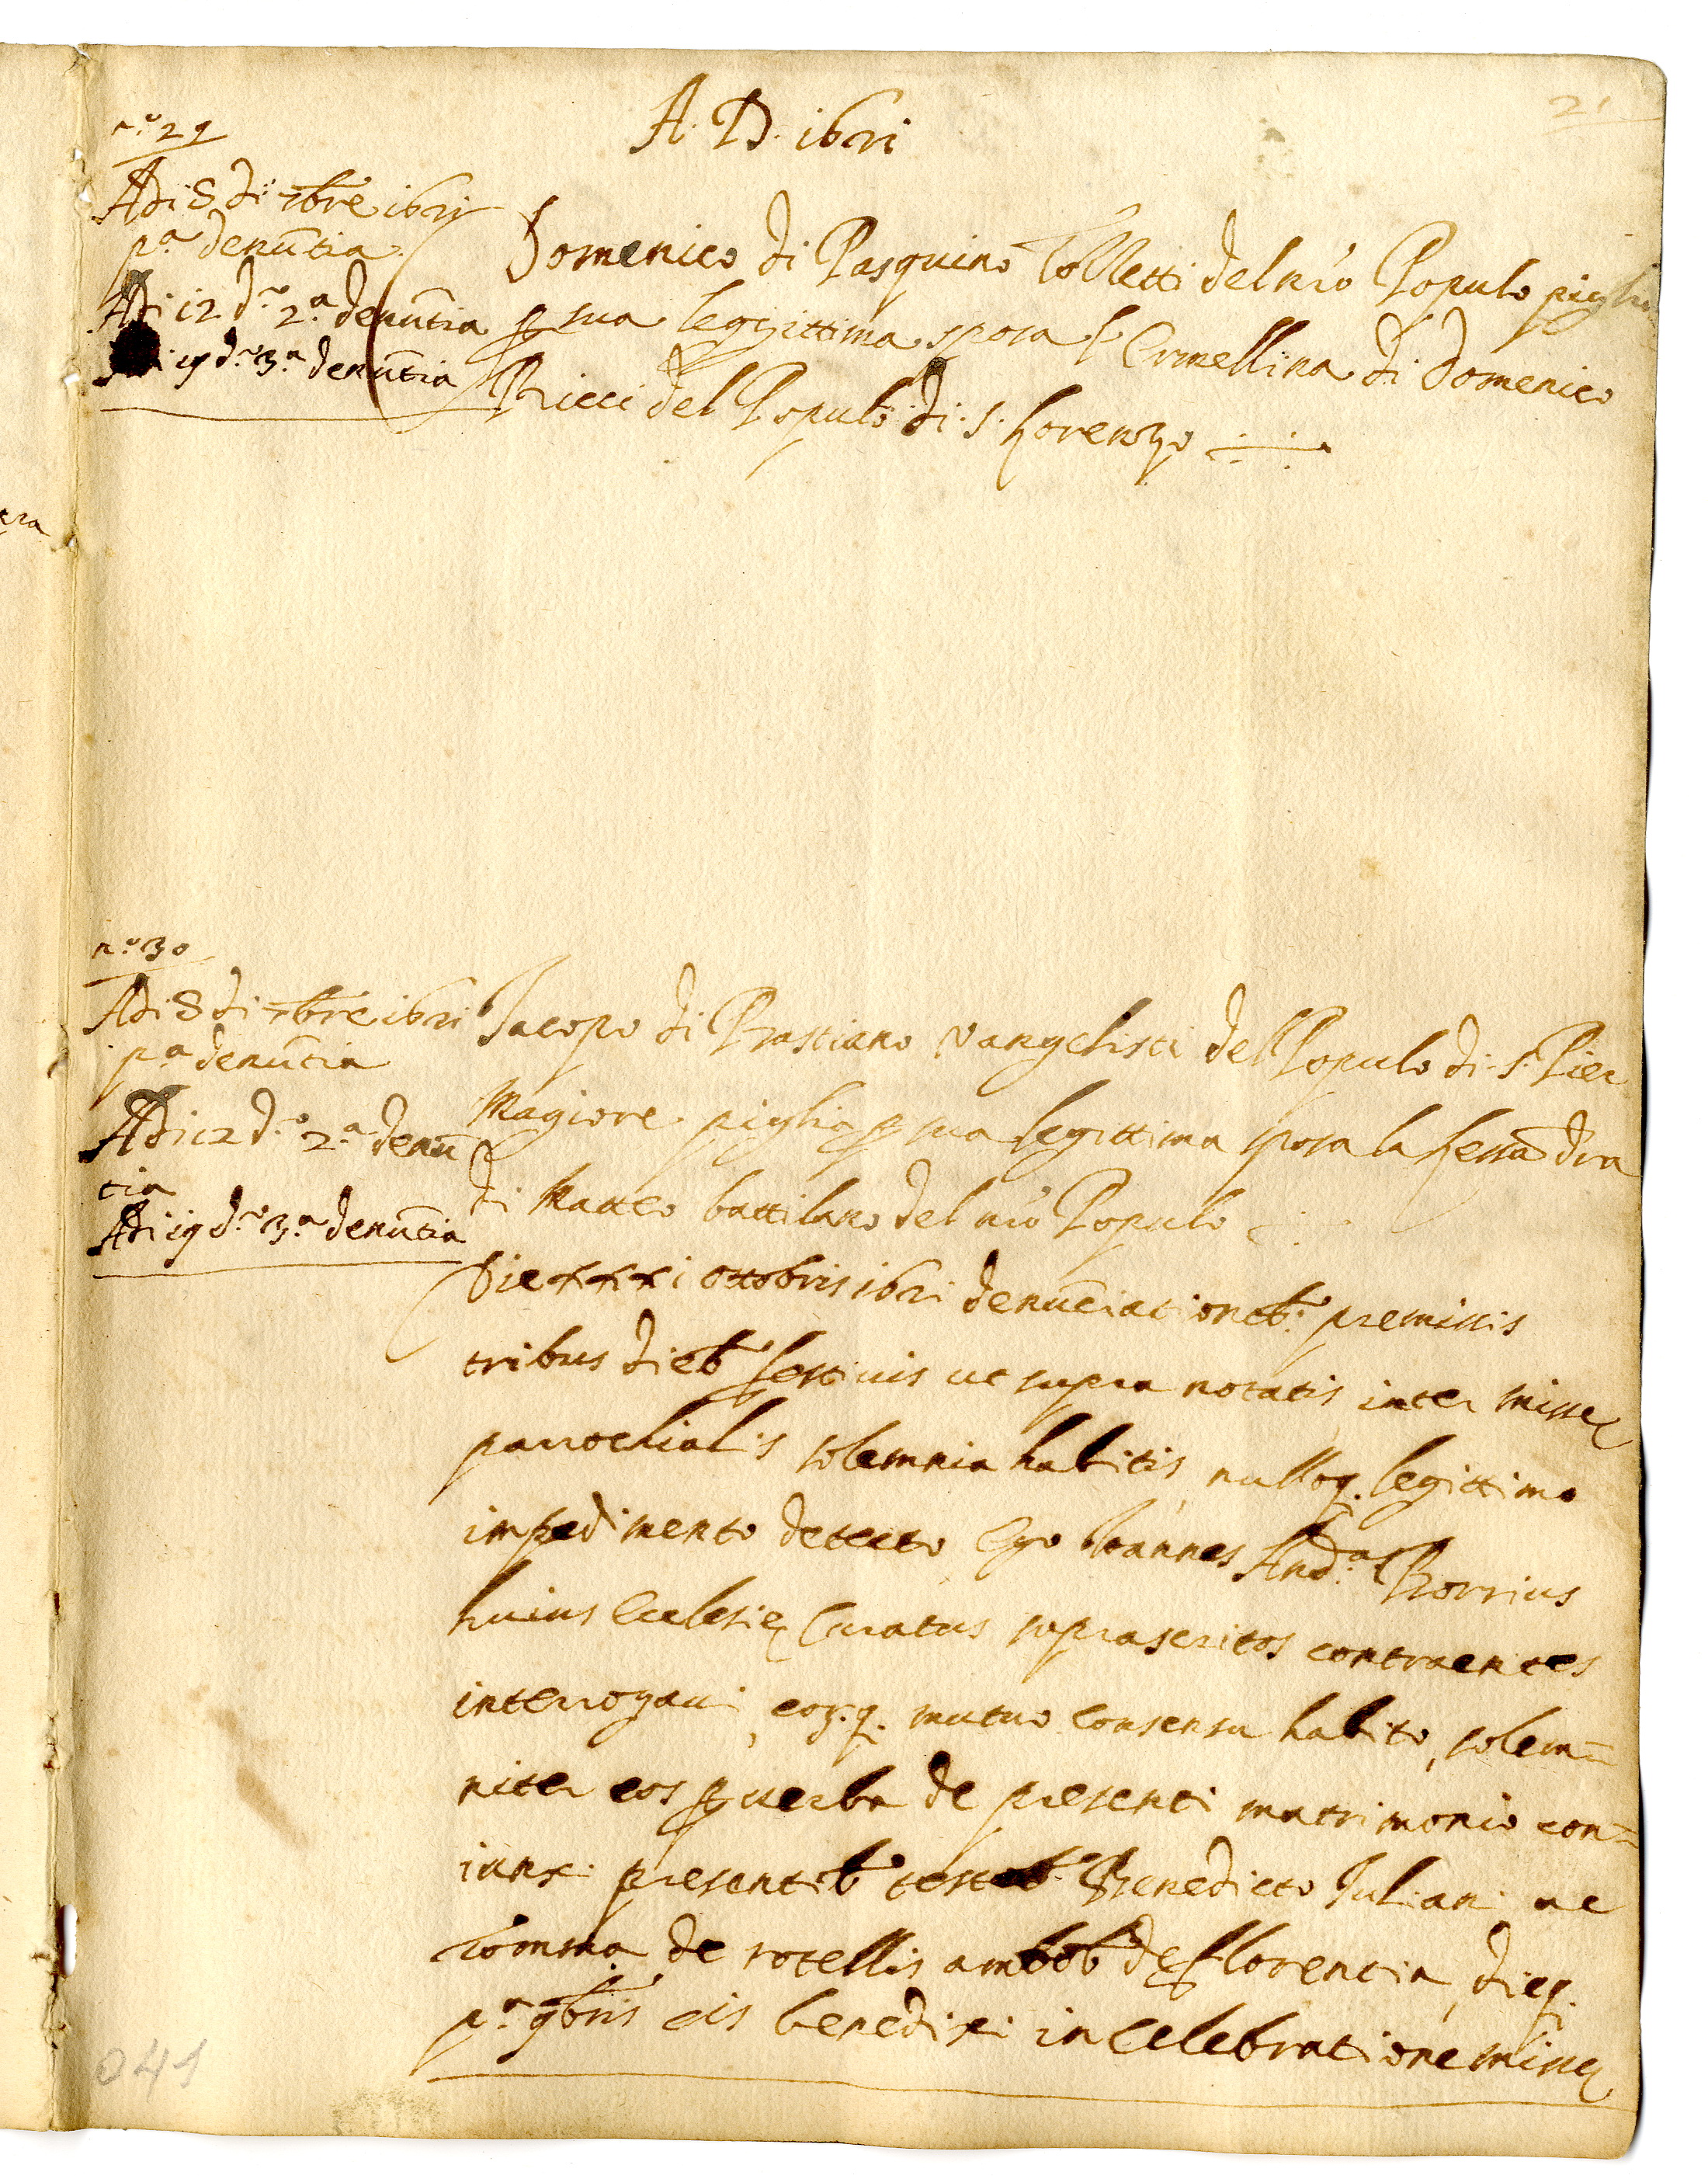 21
A. D. 1621
n.º 29
Adi 5 di 7bre 1621
p.ª denūtia
Adi 12 d.º 2.ª denūtia
19 d.º 3.ª denūtia
Domenico di Pasquino Colletti del nr̃o Populo piglia
p sua legittima sposa l' Ermellina di Domenico
Ricci del Populo di S. Lorenzo
era
n.º 30
Adi 5 di 7bre 1621
p.ª denūtia
Adi 12 d.º 2.ª denū
tia
Adi 19 d.º 3.ª denūtia
Jacopo di Bastiano Vangelisti del Populo di S. Pier
Magiore piglia p sua legittima sposa la
di Matteo battilano del nr̃o Populo
Die xxxi ottobris 1621 denūciationib: premissis
tribus dieb festiuis ut supra notatis inter misse
parrochialis solemnia habitis, nulloq. legittimo
impedimento detecto Ego Joannes And.ª
huius Eclesie Curatus suprascritos contraentes
interrogaui, eoz.q. mutuo consensu habito, solem=
niter eos p uerba de presenti matrimonio con=
iunxi presentib testib Benedicto Juliani ac
Tomma de rotellis ambob de florentia, dieq.
p.ª 9bris eis benedixi in celebratione misse
041